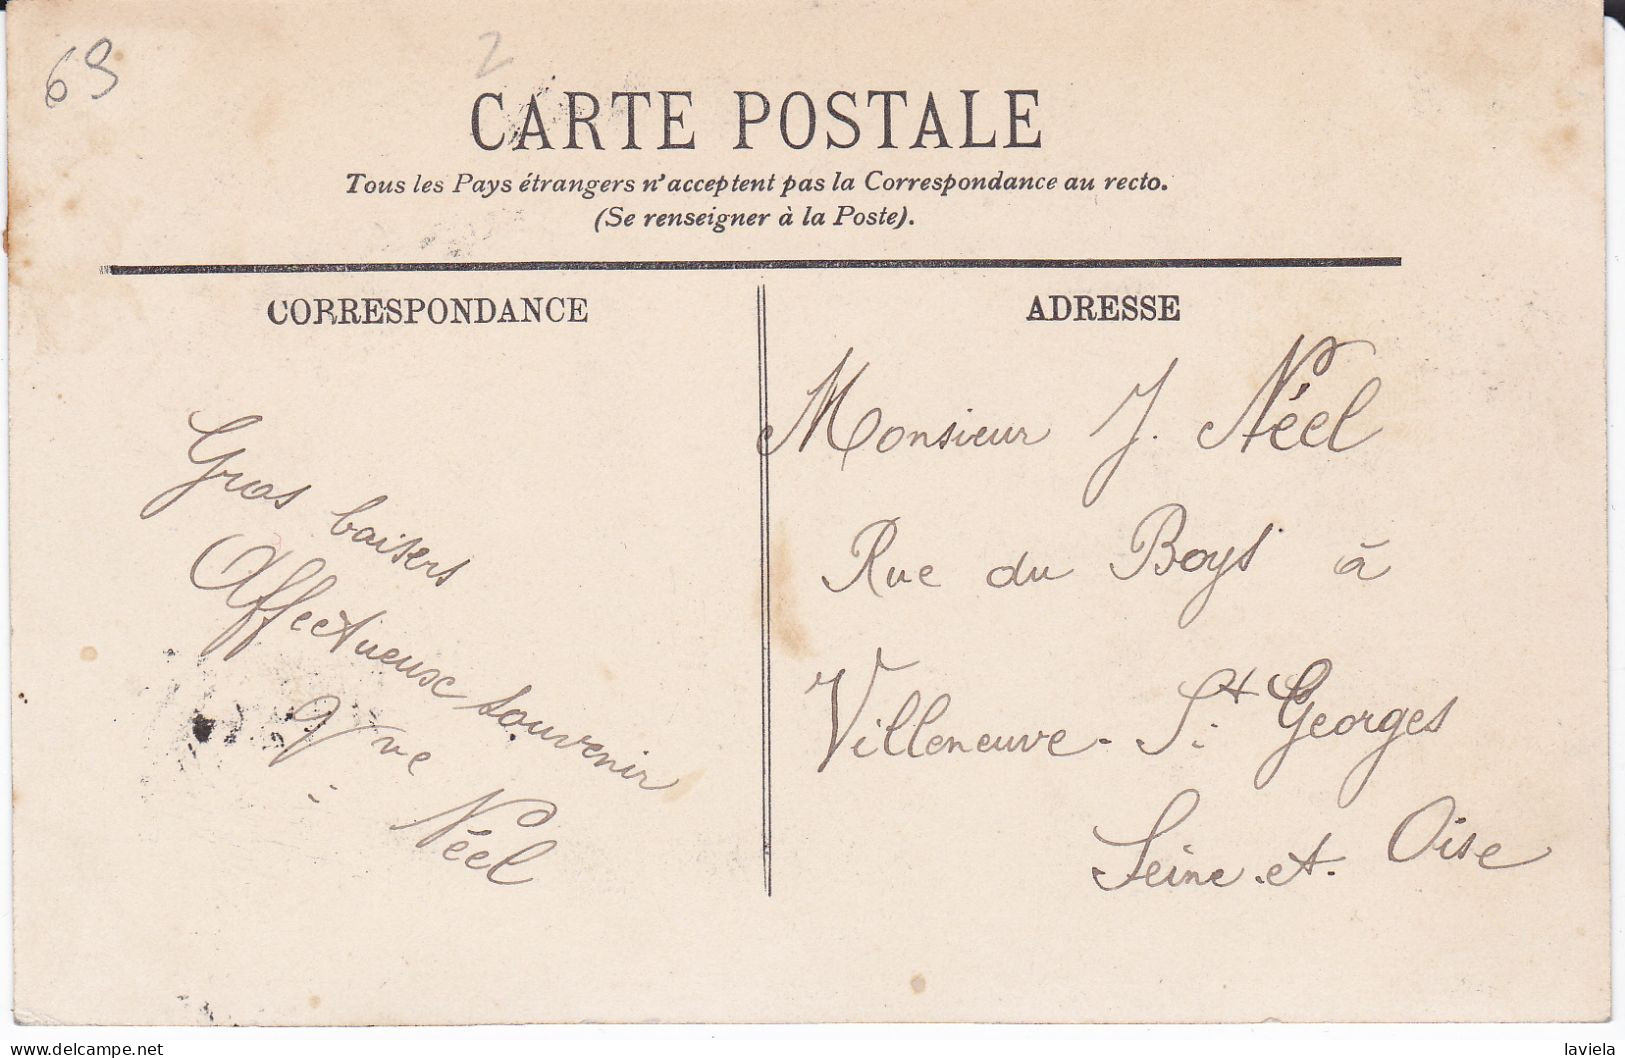 69
2
CARTE POSTALE
Tous les Pays étrangers n'acceptent pas la Correspondance au recto.
(Se renseigner à la Poste).
CORRESPONDANCE
Gros baisers
Affectueuse souvenir
Vve Néel
ADRESSE
Monsieur J. Néel
Rue du Boys à
Villeneuve-St Georges
Seine-et-Oise
delcampe.net
laviela